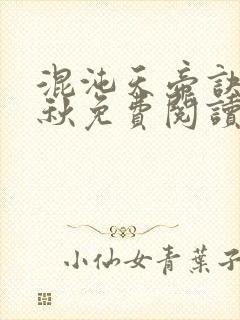 混沌天帝訣
秋免費閱讀
小仙女青葉子